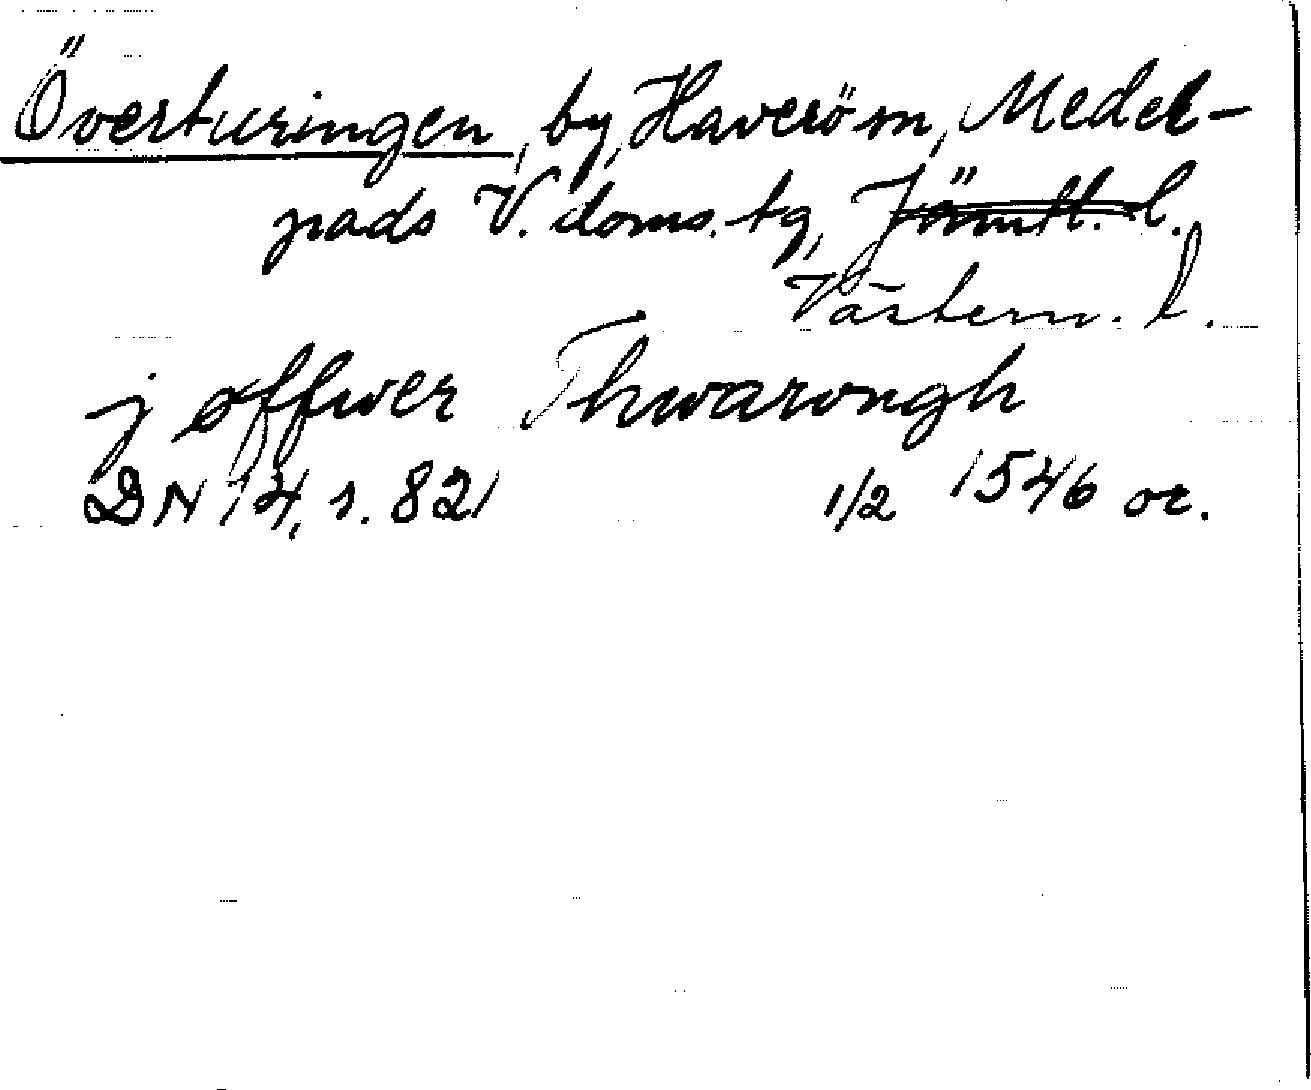 Överturingen, by, Haverö sn, Medel-
pads V. doms. tg, Jämtl. l.
Västern. l.
j offwer Thwarongh
DN 14, s. 821 1/2 1546 or.